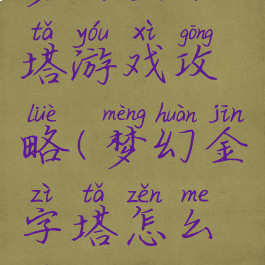 tǎ yóu xì gōng
塔游戏攻
lüè mèng huàn jīn
略(梦幻金
zì tǎ zěn me
字塔怎么